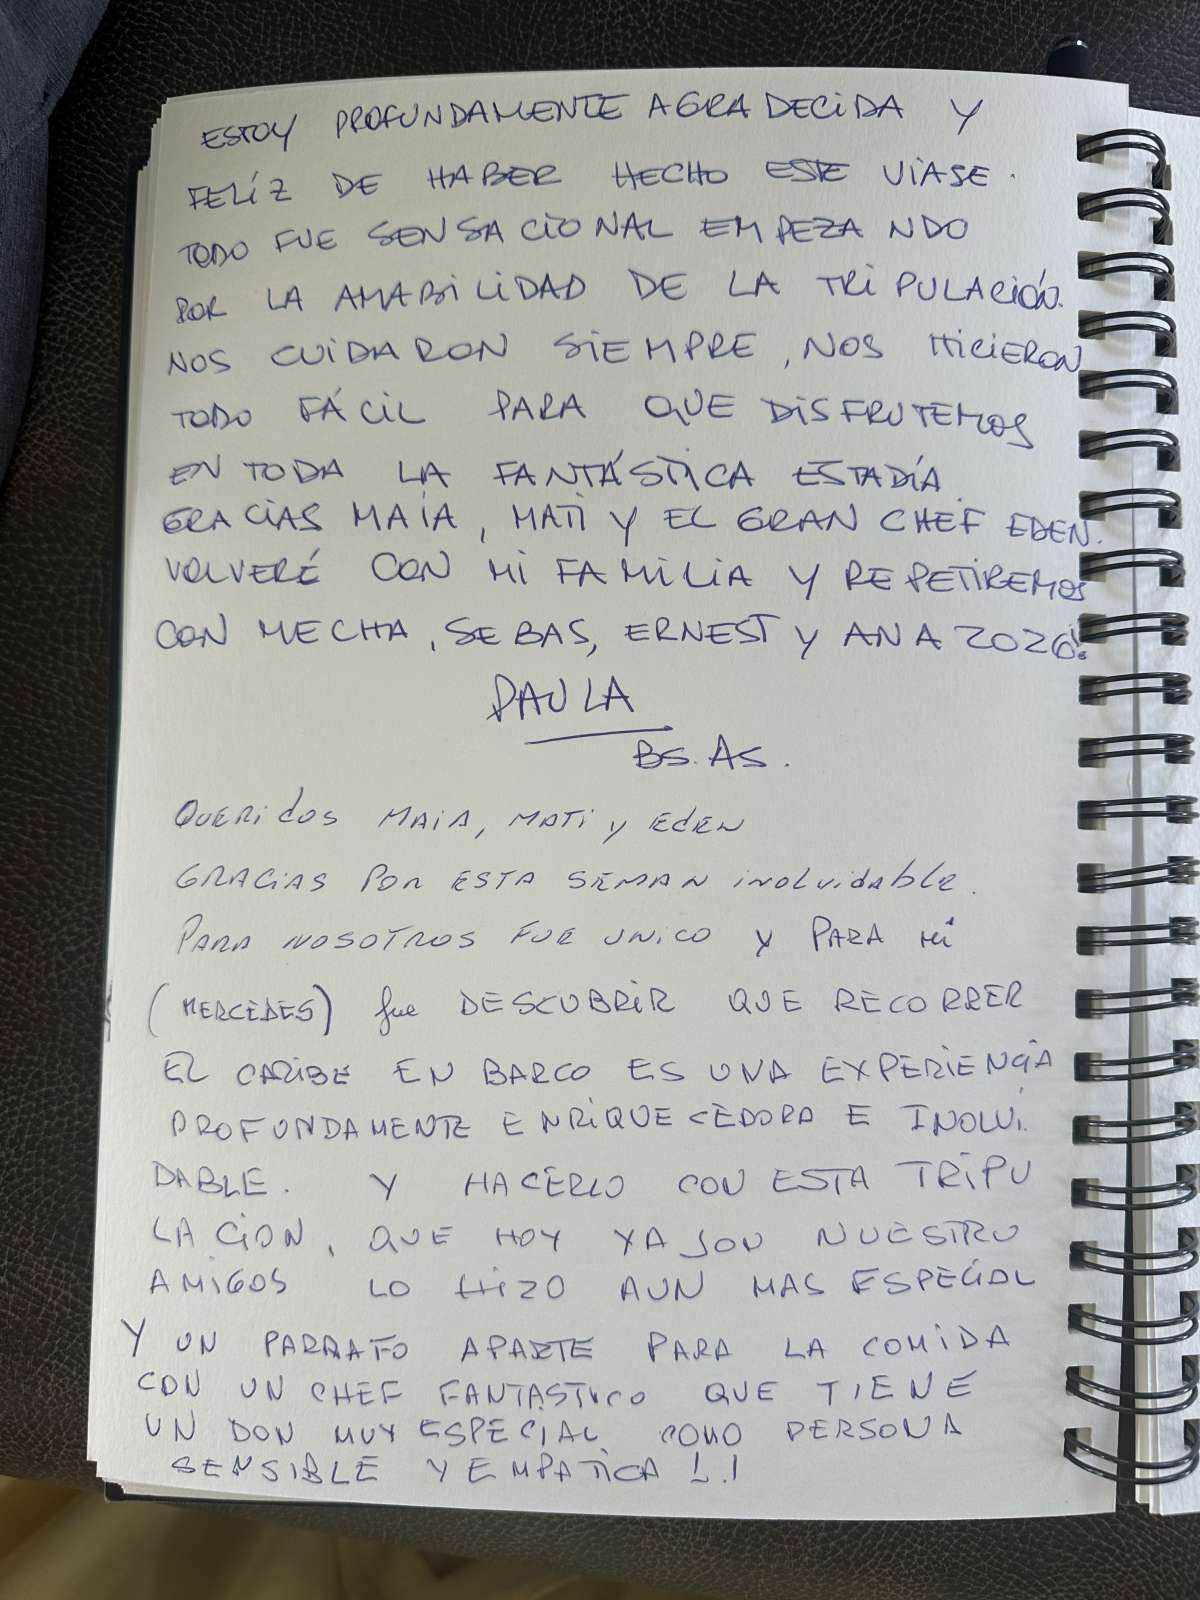 ESTOY PROFUNDAMENTE AGRADECIDA Y
FELÍZ DE HABER HECHO ESTE VIASE.
TODO FUE SENSACIONAL EMPEZANDO
POR LA AMABILIDAD DE LA TRIPULACIÓN.
NOS CUIDARON SIEMPRE, NOS HICIERON
TODO FÁCIL PARA QUE DISFRUTEMOS
EN TODA LA FANTÁSTICA ESTADÍA.
GRACIAS MAÍA, MATI Y EL GRAN CHEF EDEN.
VOLVERÉ CON MI FAMILIA Y REPETIREMOS
CON MECHA, SEBAS, ERNEST Y ANA 2026!
PAULA
BS. AS.
QUERIdOS MAIA, MATI y EdEN
GRACIAS POR ESTA SEMAN INOLVIdAblE.
PARA NOSOTROS FUE UNICO y PARA MÍ
(MERCEDES) fue DESCUBRIR QUE RECORRER
EL CARIBE EN BARCO ES UNA EXPERIENCIA
PROFUNDAMENTE ENRIQUECEDORA E INOLVI.
DABLE. Y HACERLO CON ESTA TRIPU
LACION, QUE HOY YA SON NUESTRO
AMIGOS LO HIZO AUN MAS ESPECIAL
Y UN PARRAFO APARTE PARA LA COMIDA
CON UN CHEF FANTASTICO QUE TIENE
UN DON MUY ESPECIAL COMO PERSONA
SENSIBLE Y EMPATICA !.!